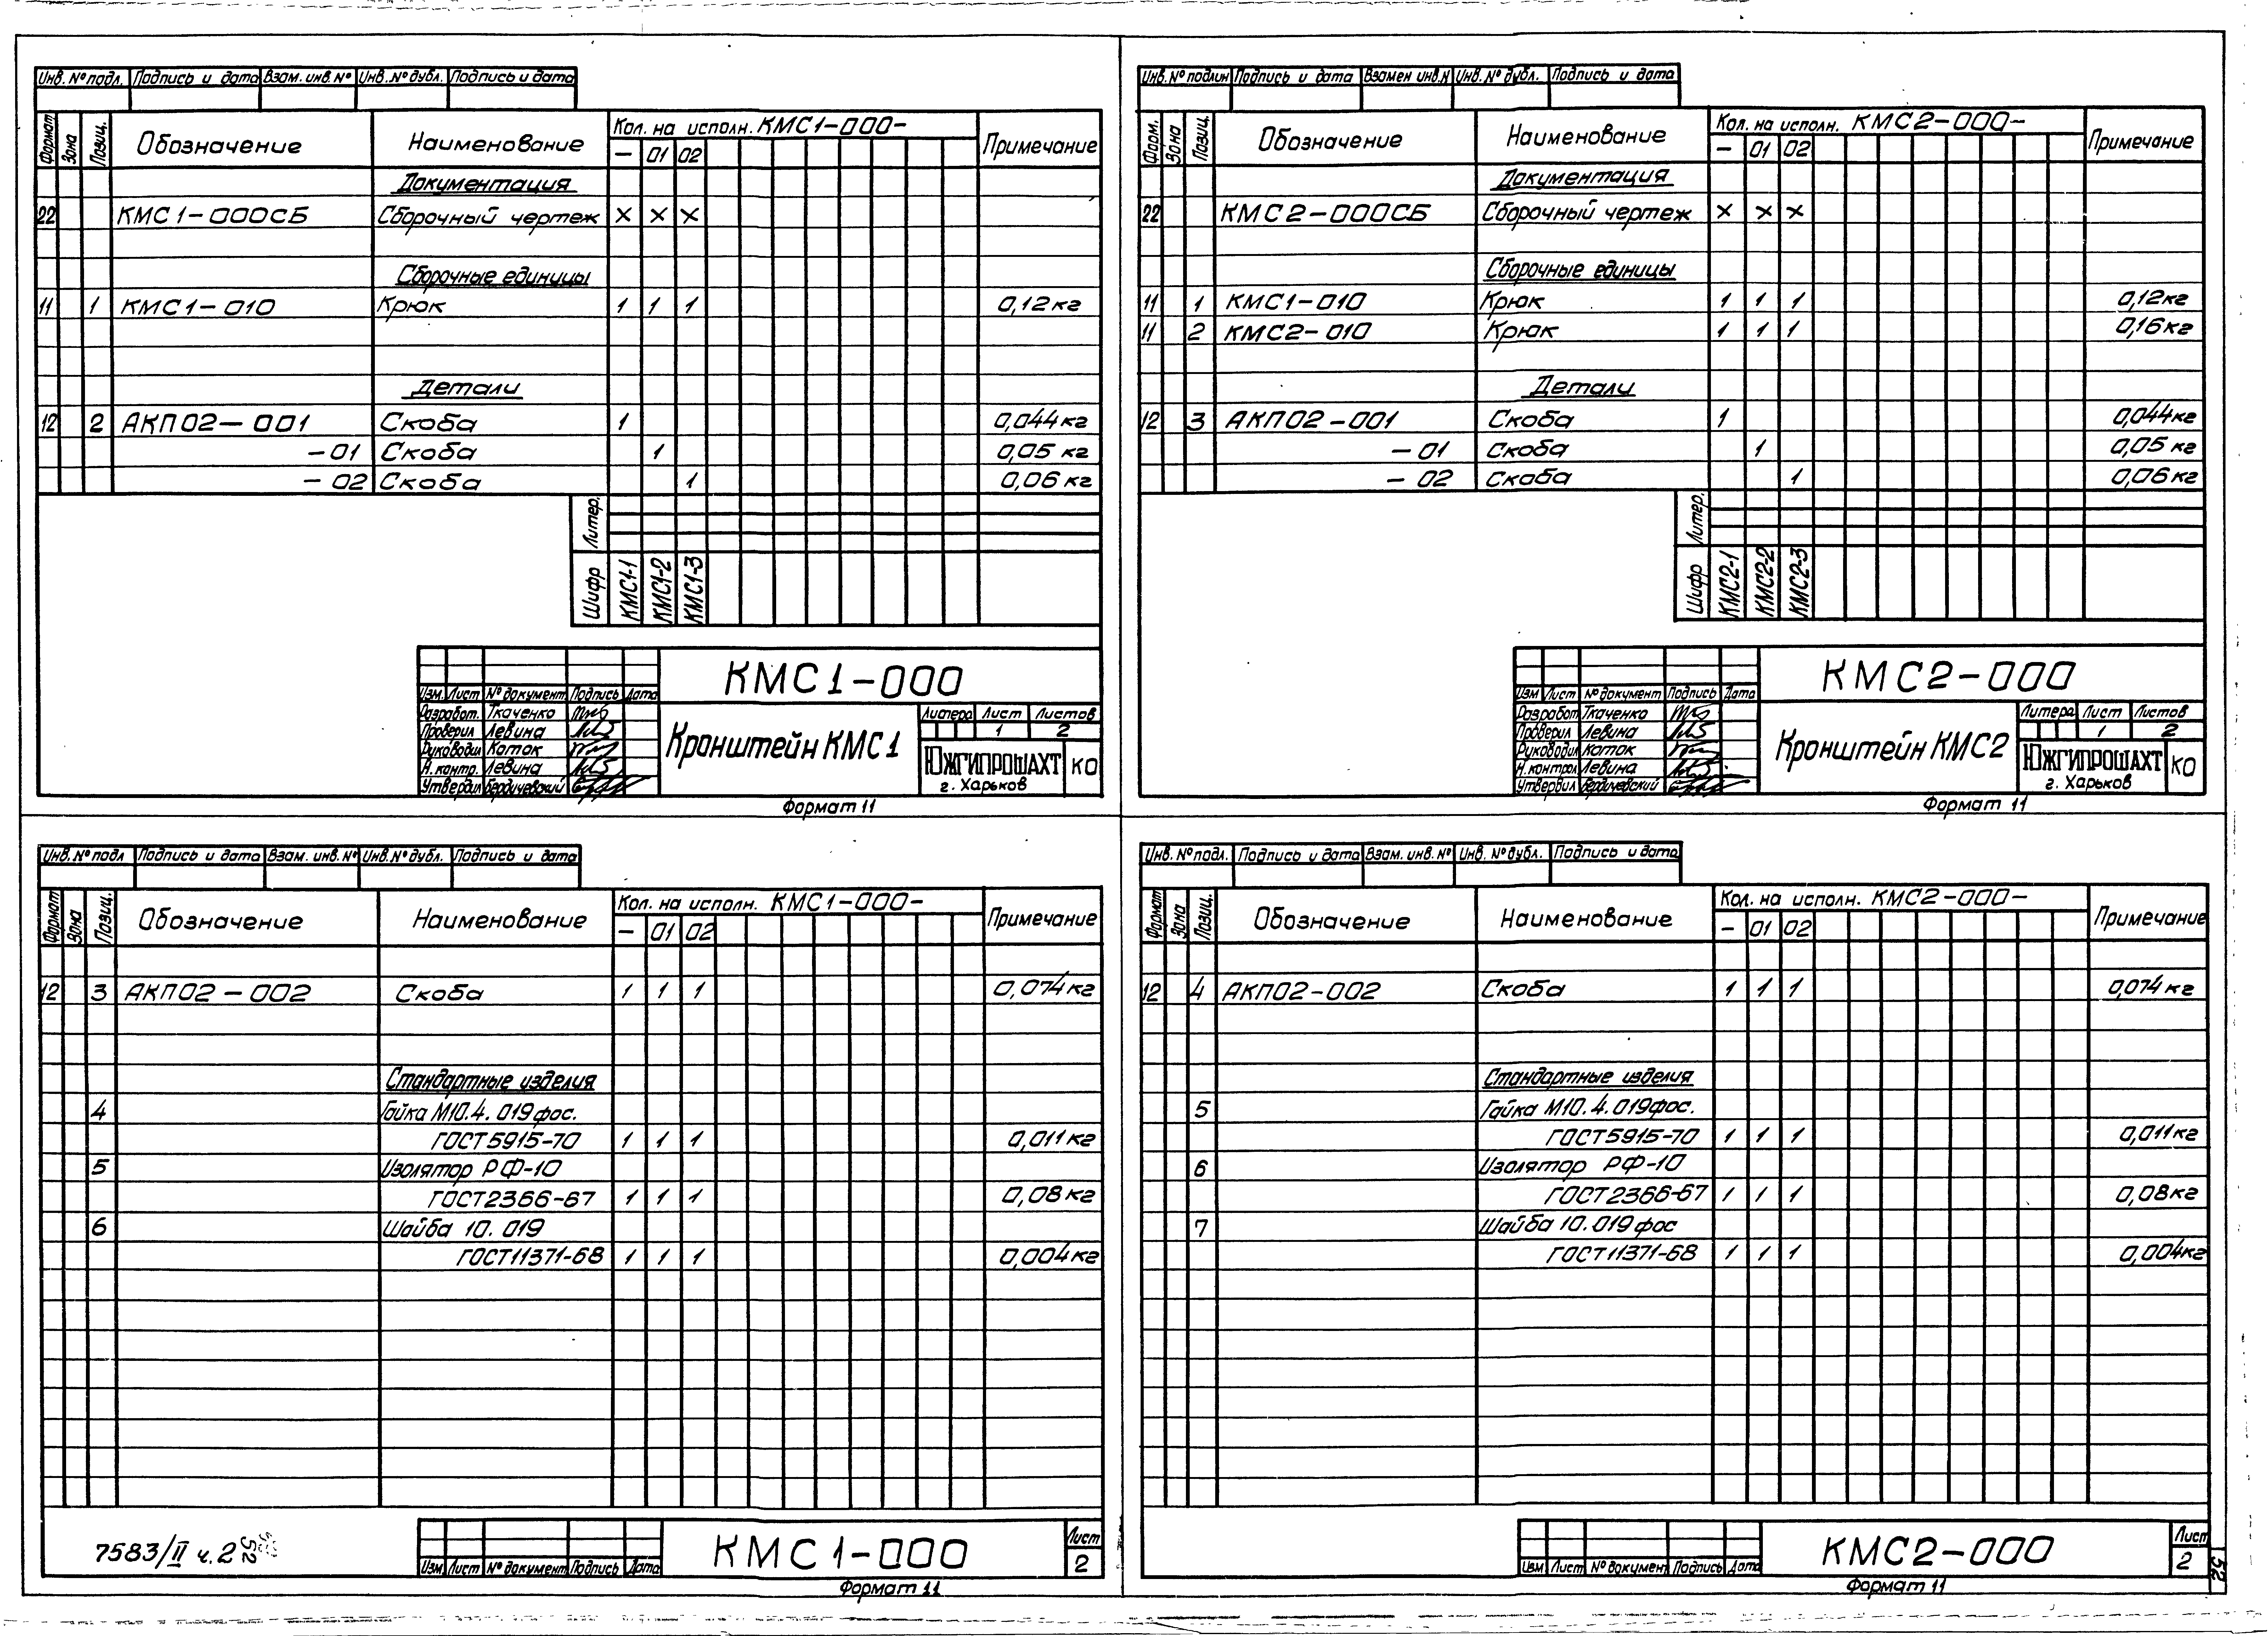 Инв. № подл. Подпись и дата Взам. инв. № Инв. № дубл. Подпись и дата
Формат Зона Позиц. Обозначение Наименование Кол. на исполн. КМС1-000- Примечание
- 01 02
Документация
22 КМС1-000СБ Сборочный чертеж х х х
Сборочные единицы
11 1 КМС1-010 Крюк 1 1 1 0,12 кг
Детали
12 2 АКП02-001 Скоба 1 0,044 кг
-01 Скоба 1 0,05 кг
-02 Скоба 1 0,06 кг
Литер.
Шифр КМС1-1 КМС1-2 КМС1-3
КМС1-000
Изм. Лист № документ. Подпись Дата
Разработ. Ткаченко
Проверил Левина
Руководил Каток
Н. контр. Левина
Утвердил Бердичевский
Кронштейн КМС1
Литера Лист Листов
1 2
ЮЖГИПРОШАХТ
г. Харьков
КО
Формат 11
Инв. № подлин Подпись и дата Взамен инв. № Инв. № дубл. Подпись и дата
Форм. Зона Позиц. Обозначение Наименование Кол. на исполн. КМС2-000- Примечание
- 01 02
Документация
22 КМС2-000СБ Сборочный чертеж х х х
Сборочные единицы
11 1 КМС1-010 Крюк 1 1 1 0,12 кг
11 2 КМС2-010 Крюк 1 1 1 0,16 кг
Детали
12 3 АКП02-001 Скоба 1 0,044 кг
-01 Скоба 1 0,05 кг
-02 Скоба 1 0,06 кг
Литер.
Шифр КМС2-1 КМС2-2 КМС2-3
КМС2-000
Изм Лист № документ Подпись Дата
Разработ Ткаченко
Проверил Левина
Руководил Каток
Н. контрол Левина
Утвердил Бердичевский
Кронштейн КМС2
Литера Лист Листов
1 2
ЮЖГИПРОШАХТ
г. Харьков
КО
Формат 11
Инв. № подл Подпись и дата Взам. инв. № Инв. № дубл. Подпись и дата
Формат Зона Позиц. Обозначение Наименование Кол. на исполн. КМС1-000- Примечание
- 01 02
12 3 АКП02-002 Скоба 1 1 1 0,074 кг
Стандартные изделия
4 Гайка М10.4.019 фос.
ГОСТ 5915-70 1 1 1 0,011 кг
5 Изолятор РФ-10
ГОСТ 2366-67 1 1 1 0,08 кг
6 Шайба 10.019
ГОСТ 11371-68 1 1 1 0,004 кг
7583/II ч.2 52
Изм Лист № документ Подпись Дата
КМС1-000
Лист
2
Формат 11
Инв. № подл. Подпись и дата Взам. инв. № Инв. № дубл. Подпись и дата
Формат Зона Позиц. Обозначение Наименование Кол. на исполн. КМС2-000- Примечание
- 01 02
12 4 АКП02-002 Скоба 1 1 1 0,074 кг
Стандартные изделия
5 Гайка М10.4.019 фос.
ГОСТ 5915-70 1 1 1 0,011 кг
6 Изолятор РФ-10
ГОСТ 2366-67 1 1 1 0,08 кг
7 Шайба 10.019 фос
ГОСТ 11371-68 1 1 1 0,004 кг
Изм Лист № документ Подпись Дата
КМС2-000
Лист
2
Формат 11
52